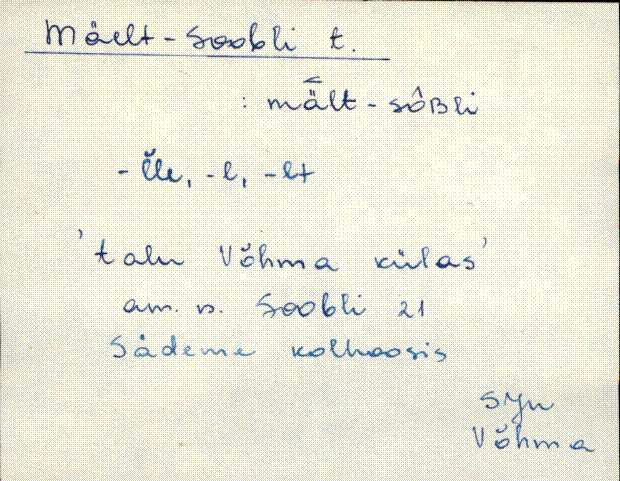 Mäelt-Soobli t.
: mält - sôʙli
- l̆le, -l, -lt
'talu Võhma külas'
am. n. Soobli 21
Sädeme kolhoosis
SJn
Võhma